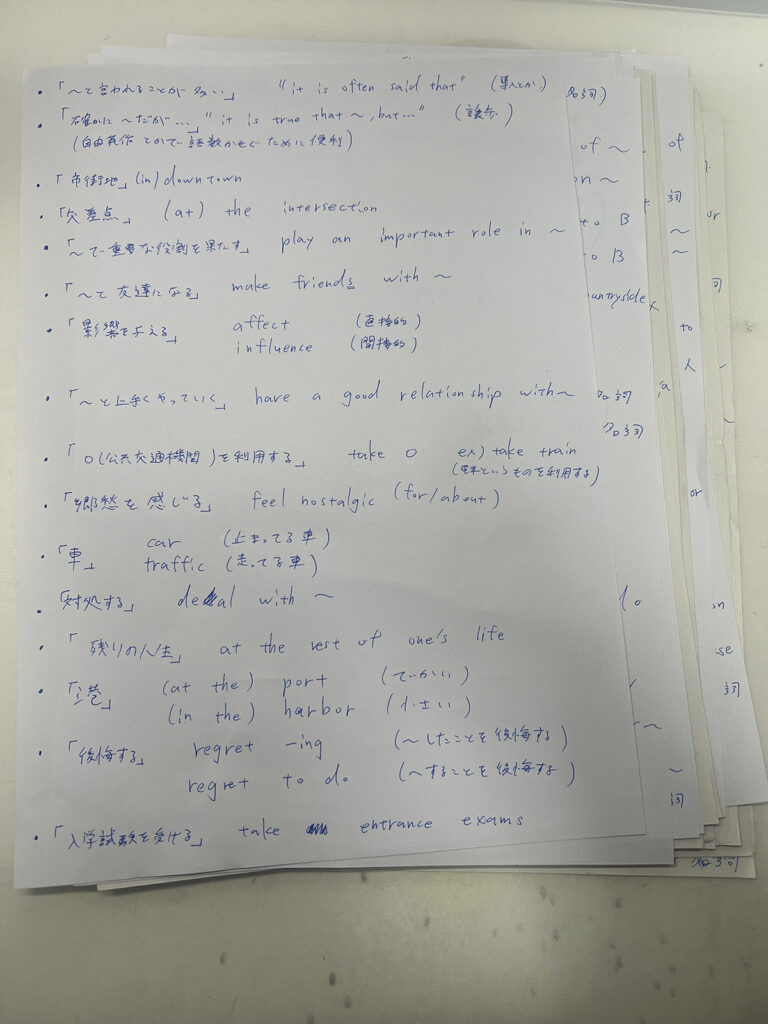 ・「〜と言われることが多い」 "it is often said that" (導入とか)
・「確かに〜だが…」 "it is true that 〜, but…" (譲歩)
(自由英作とかで語数かせぐために便利)
・「市街地」 (in) downtown
・「交差点」 (at) the intersection
・「〜で重要な役割を果たす」 play an important role in 〜
・「〜と友達になる」 make friends with 〜
・「影響を与える」 affect (直接的)
influence (間接的)
・「〜と上手くやっていく」 have a good relationship with 〜
・「O(公共交通機関)を利用する」 take O ex) take train
(電車というものを利用する)
・「郷愁を感じる」 feel nostalgic (for/about)
・「車」 car (止まってる車)
traffic (走ってる車)
・「対処する」 deal with 〜
・「残りの人生」 at the rest of one's life
・「港」 (at the) port (でかい)
(in the) harbor (小さい)
・「後悔する」 regret -ing (〜したことを後悔する)
regret to do (〜することを後悔する)
・「入学試験を受ける」 take entrance exams
名詞)
of 〜
on 〜
to B
to B
countryside
名詞
名詞
of
詞
〜
〜
to
人
or
or
in
se
詞
詞
名詞